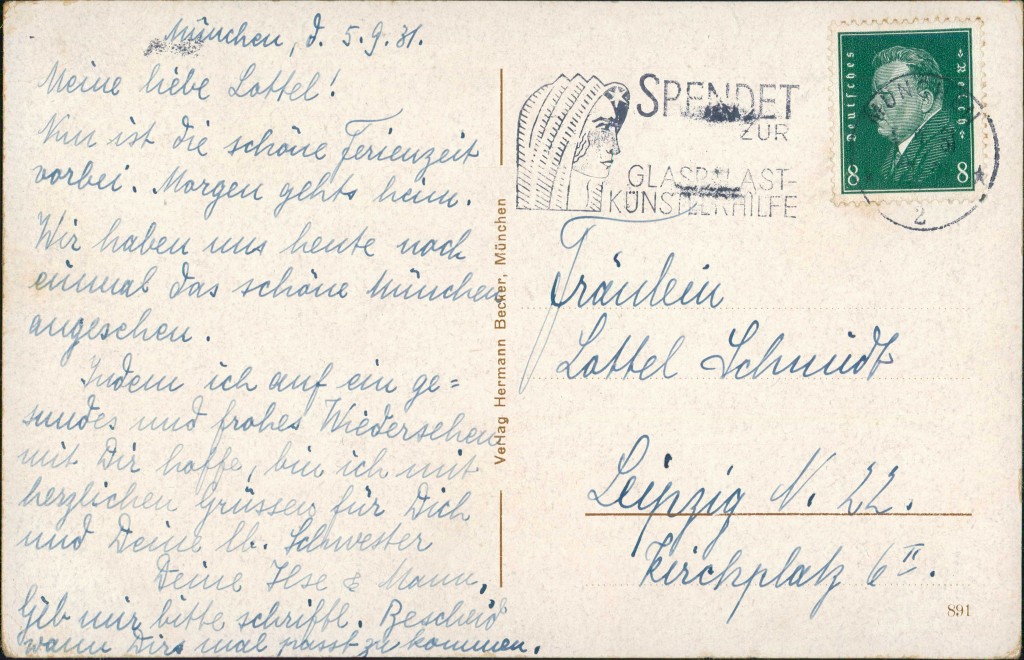 München, d. 5.9.31.
Meine liebe Lottel!
Nun ist die schöne Ferienzeit
vorbei. Morgen gehts heim.
Wir haben uns heute noch
einmal das schöne München
angesehen.
Indem ich auf ein ge=
sundes und frohes Wiedersehen
mit Dir hoffe, bin ich mit
herzlichen Grüssen für Dich
und Deine lb. Schwester
Deine Ilse & Mann.
Gib mir bitte schriftl. Bescheid
wann Dirs mal passt zu kommen.
Verlag Hermann Becker, München
SPENDET
ZUR
GLASPALAST-
KÜNSTLERHILFE
Deutsches Reich
8 8
2
Fräulein
Lottel Schmidt
Leipzig N. 22.
Kirchplatz 6 II.
891